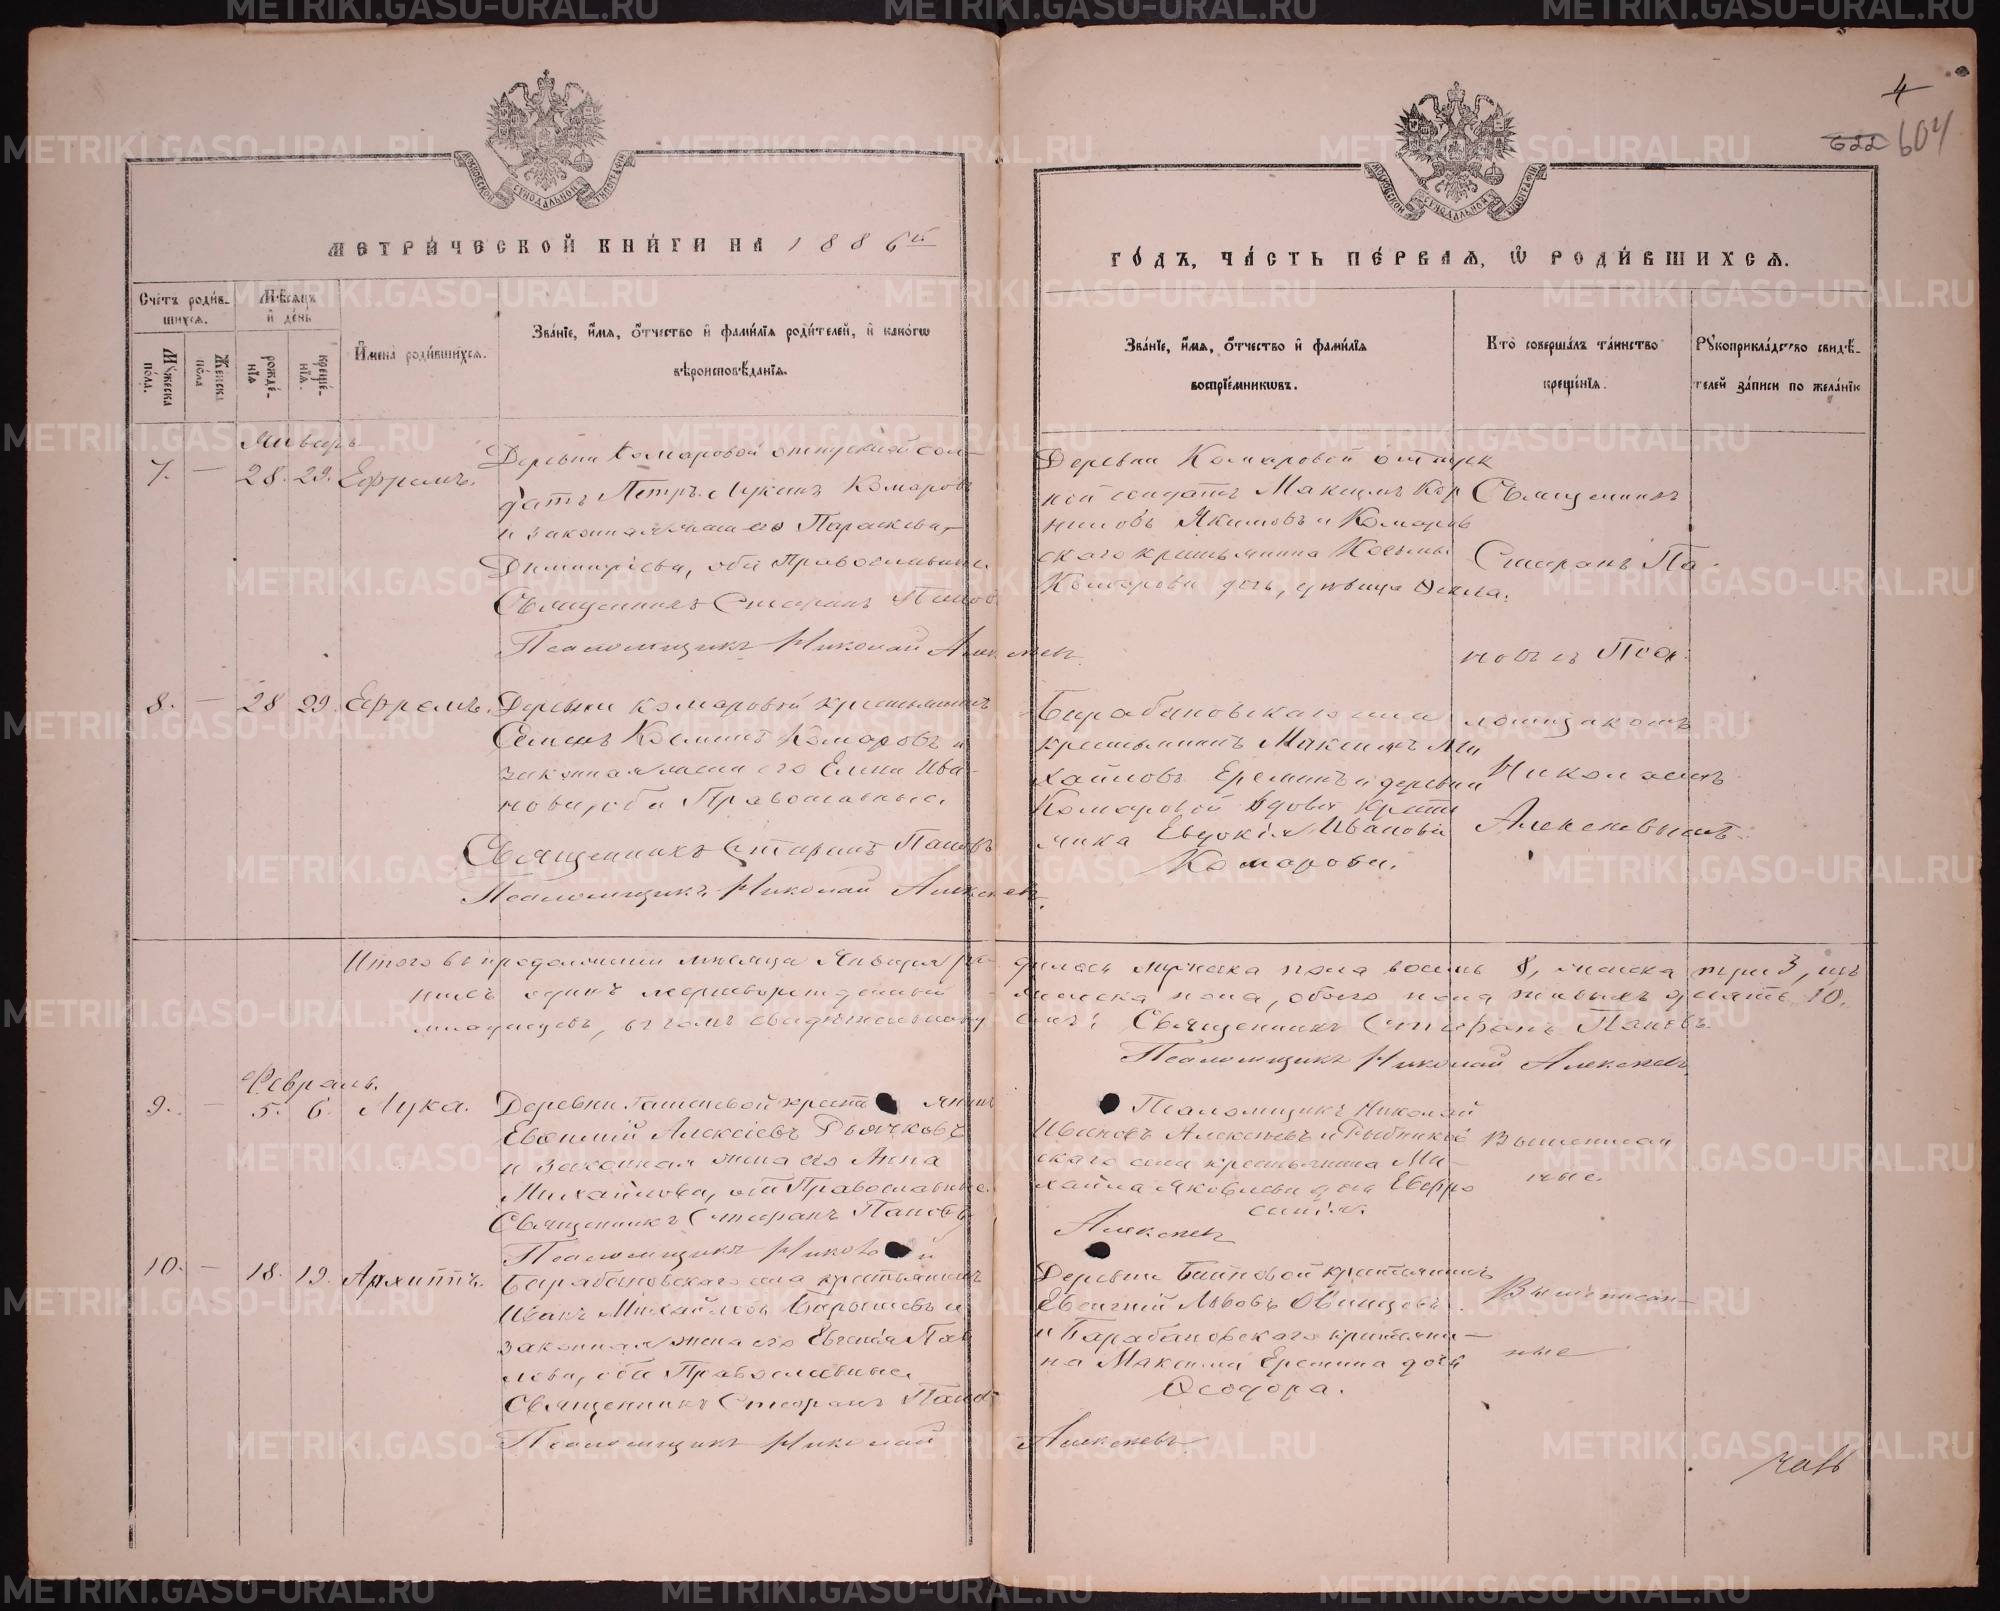 МЕТРИ́ЧЕСКОЙ КНИ́ГИ НА 1886й
ГО́ДЪ, ЧА́СТЬ ПЕ́РВАѦ, Ѿ РОДИ́ВШИХСѦ.
МОСКОВСКОЙ СѴНОДАЛЬНОЙ ТИПОГРАФІИ
МОСКОВСКОЙ СѴНОДАЛЬНОЙ ТИПОГРАФІИ
4
622 604
Сче́тъ роди́в-
шихсѧ.
Мꙋ́жеска по́ла.
Же́нска по́ла
Мѣ́сѧцъ
и҆ де́нь
рожде́-
нїѧ
креще́-
нїѧ.
И҆мена̀ роди́вшихсѧ.
Зва́нїе, и҆́мѧ, ѻ҆́тчество и҆ фами́лїѧ роди́телей, и҆ како́гѡ
вѣроисповѣ́данїѧ.
Зва́нїе, и҆́мѧ, ѻ҆́тчество и҆ фами́лїѧ
воспрїе́мникѡвъ.
Кто̀ соверша́лъ та́инство
креще́нїѧ.
Рꙋкоприкла́дство свидѣ́-
телей за́писи по жела́нїю
Январь
7. — 28. 29. Ефремъ.
Деревни Комаровой отпускной сол-
датъ Петръ Лукинъ Комаровъ
и законная жена его Параскева
Димитріева, оба Православные.
Священникъ Стефанъ Пановъ
Псаломщикъ Николай Алексѣевъ
Деревни Комаровой отпуск
ной солдатъ Максимъ Кор
ниловъ Якимовъ и Комаров
скаго крестьянина Косьмы
Комарова дочь, дѣвица Ѳекла.
Священникъ
Стефанъ Па-
новъ съ Пса-
ломщикомъ
Николаемъ
Алексѣевымъ
8. — 28 29. Ефремъ.
Деревни Комаровой крестьянинъ
Семенъ Косминъ Комаровъ и
законная жена его Елена Ива-
нова, оба Православные.
Священникъ Стефанъ Пановъ
Псаломщикъ Николай Алексѣевъ.
Барабановскаго села
крестьянинъ Максимъ Ми
хайловъ Ереминъ и деревни
Комаровой вдова
Евдокія Иванова
Комарова.
Итого въ продолженіи мѣсяца Января ро- дилось мужеска пола восемь 8, женска три 3, изъ
нихъ одинъ мертворожденный женска пола, обоего пола живыхъ десять 10.
младенцевъ, въ чемъ свидѣтельствуемъ: Священникъ Стефанъ Пановъ.
Псаломщикъ Николай Алексѣевъ.
Февраль.
9. — 5. 6. Лука.
Деревни крестьянинъ
Евѳимій Алексіевъ
и законная жена его Анна
Михайлова, оба Православные.
Священникъ Стефанъ Пановъ
Псаломщикъ Николай Алексѣевъ
Псаломщикъ Николай
Ивановъ Алексѣевъ и Рыбников
скаго села крестьянина Ми-
хаила Яковлева дочь Евфро
синія.
Вышеписан
ные.
10. — 18. 19. Архиппъ.
Барабановскаго села крестьянинъ
Иванъ Михайловъ Барышевъ и
законная жена его Евгенія Пав
лова, оба Православные.
Священникъ Стефанъ Пановъ
Псаломщикъ Николай Алексѣевъ.
Деревни крестьянинъ
Евгеній Львовъ Овинцевъ
и Барабановскаго крестьяни-
на Максима Еремина дочь
Ѳеодора.
Вышеписан-
ные
METRIKI.GASO-URAL.RU